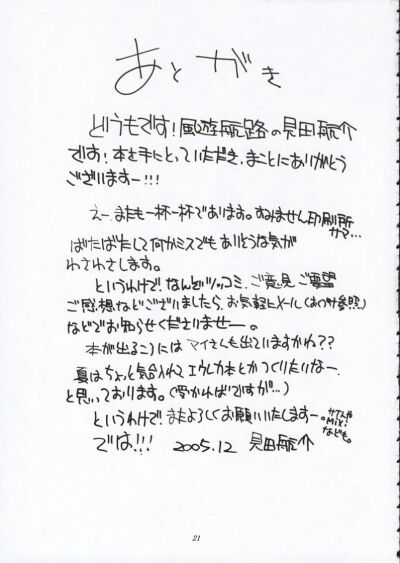 あとがき
どうもです！風遊航路の見田航介
です！本を手にとっていただき、まことにありがとう
ございますー!!!
えー、またも一杯一杯であります。すみません印刷所
サマ…
ばたばたして何かミスでもありそうな気が
わさわさします。
というわけで！なんどツッコミ、ご意見、ご要望
ご感想などございましたら、お気軽にメール(あつけ参照)
などでお知らせくださいませー。
本が出るころにはマイさんも出ていますかね？？
夏はちょっと気合入れてエウレカ本とかつくりたいなー、
と思っております。(受かればですが…)
というわけで！またよろしくお願いいたしますー。
MiX!
なども。
では!!! 2005.12 見田航介
21